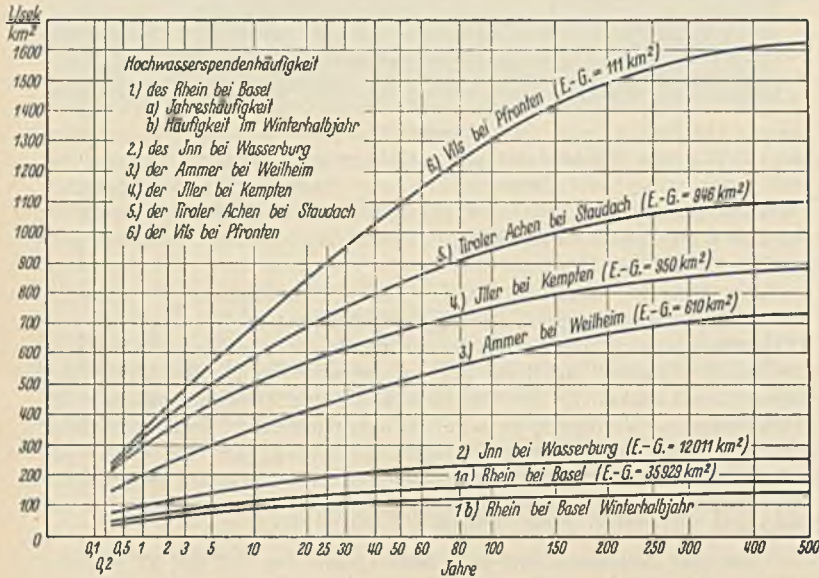 l/sek
km²
1600
1500
1400
1300
1200
1100
1000
900
800
700
600
500
400
300
200
100
0
Hochwasserspendenhäufigkeit
1.) des Rhein bei Basel
a) Jahreshäufigkeit
b) Häufigkeit im Winterhalbjahr
2.) des Jnn bei Wasserburg
3.) der Ammer bei Weilheim
4.) der Jller bei Kempten
5.) der Tiroler Achen bei Staudach
6.) der Vils bei Pfronten
6.) Vils bei Pfronten (E.-G. = 111 km²)
5.) Tiroler Achen bei Staudach (E.-G. = 946 km²)
4.) Jller bei Kempten (E.-G. = 950 km²)
3.) Ammer bei Weilheim (E.-G. = 610 km²)
2.) Jnn bei Wasserburg (E.-G. = 12011 km²)
1a) Rhein bei Basel (E.-G. = 35929 km²)
1b) Rhein bei Basel Winterhalbjahr
0,1 0,5 1 2 3 5 10 20 25 30 40 50 60 80 100 150 200 250 300 400 500
0,2
Jahre